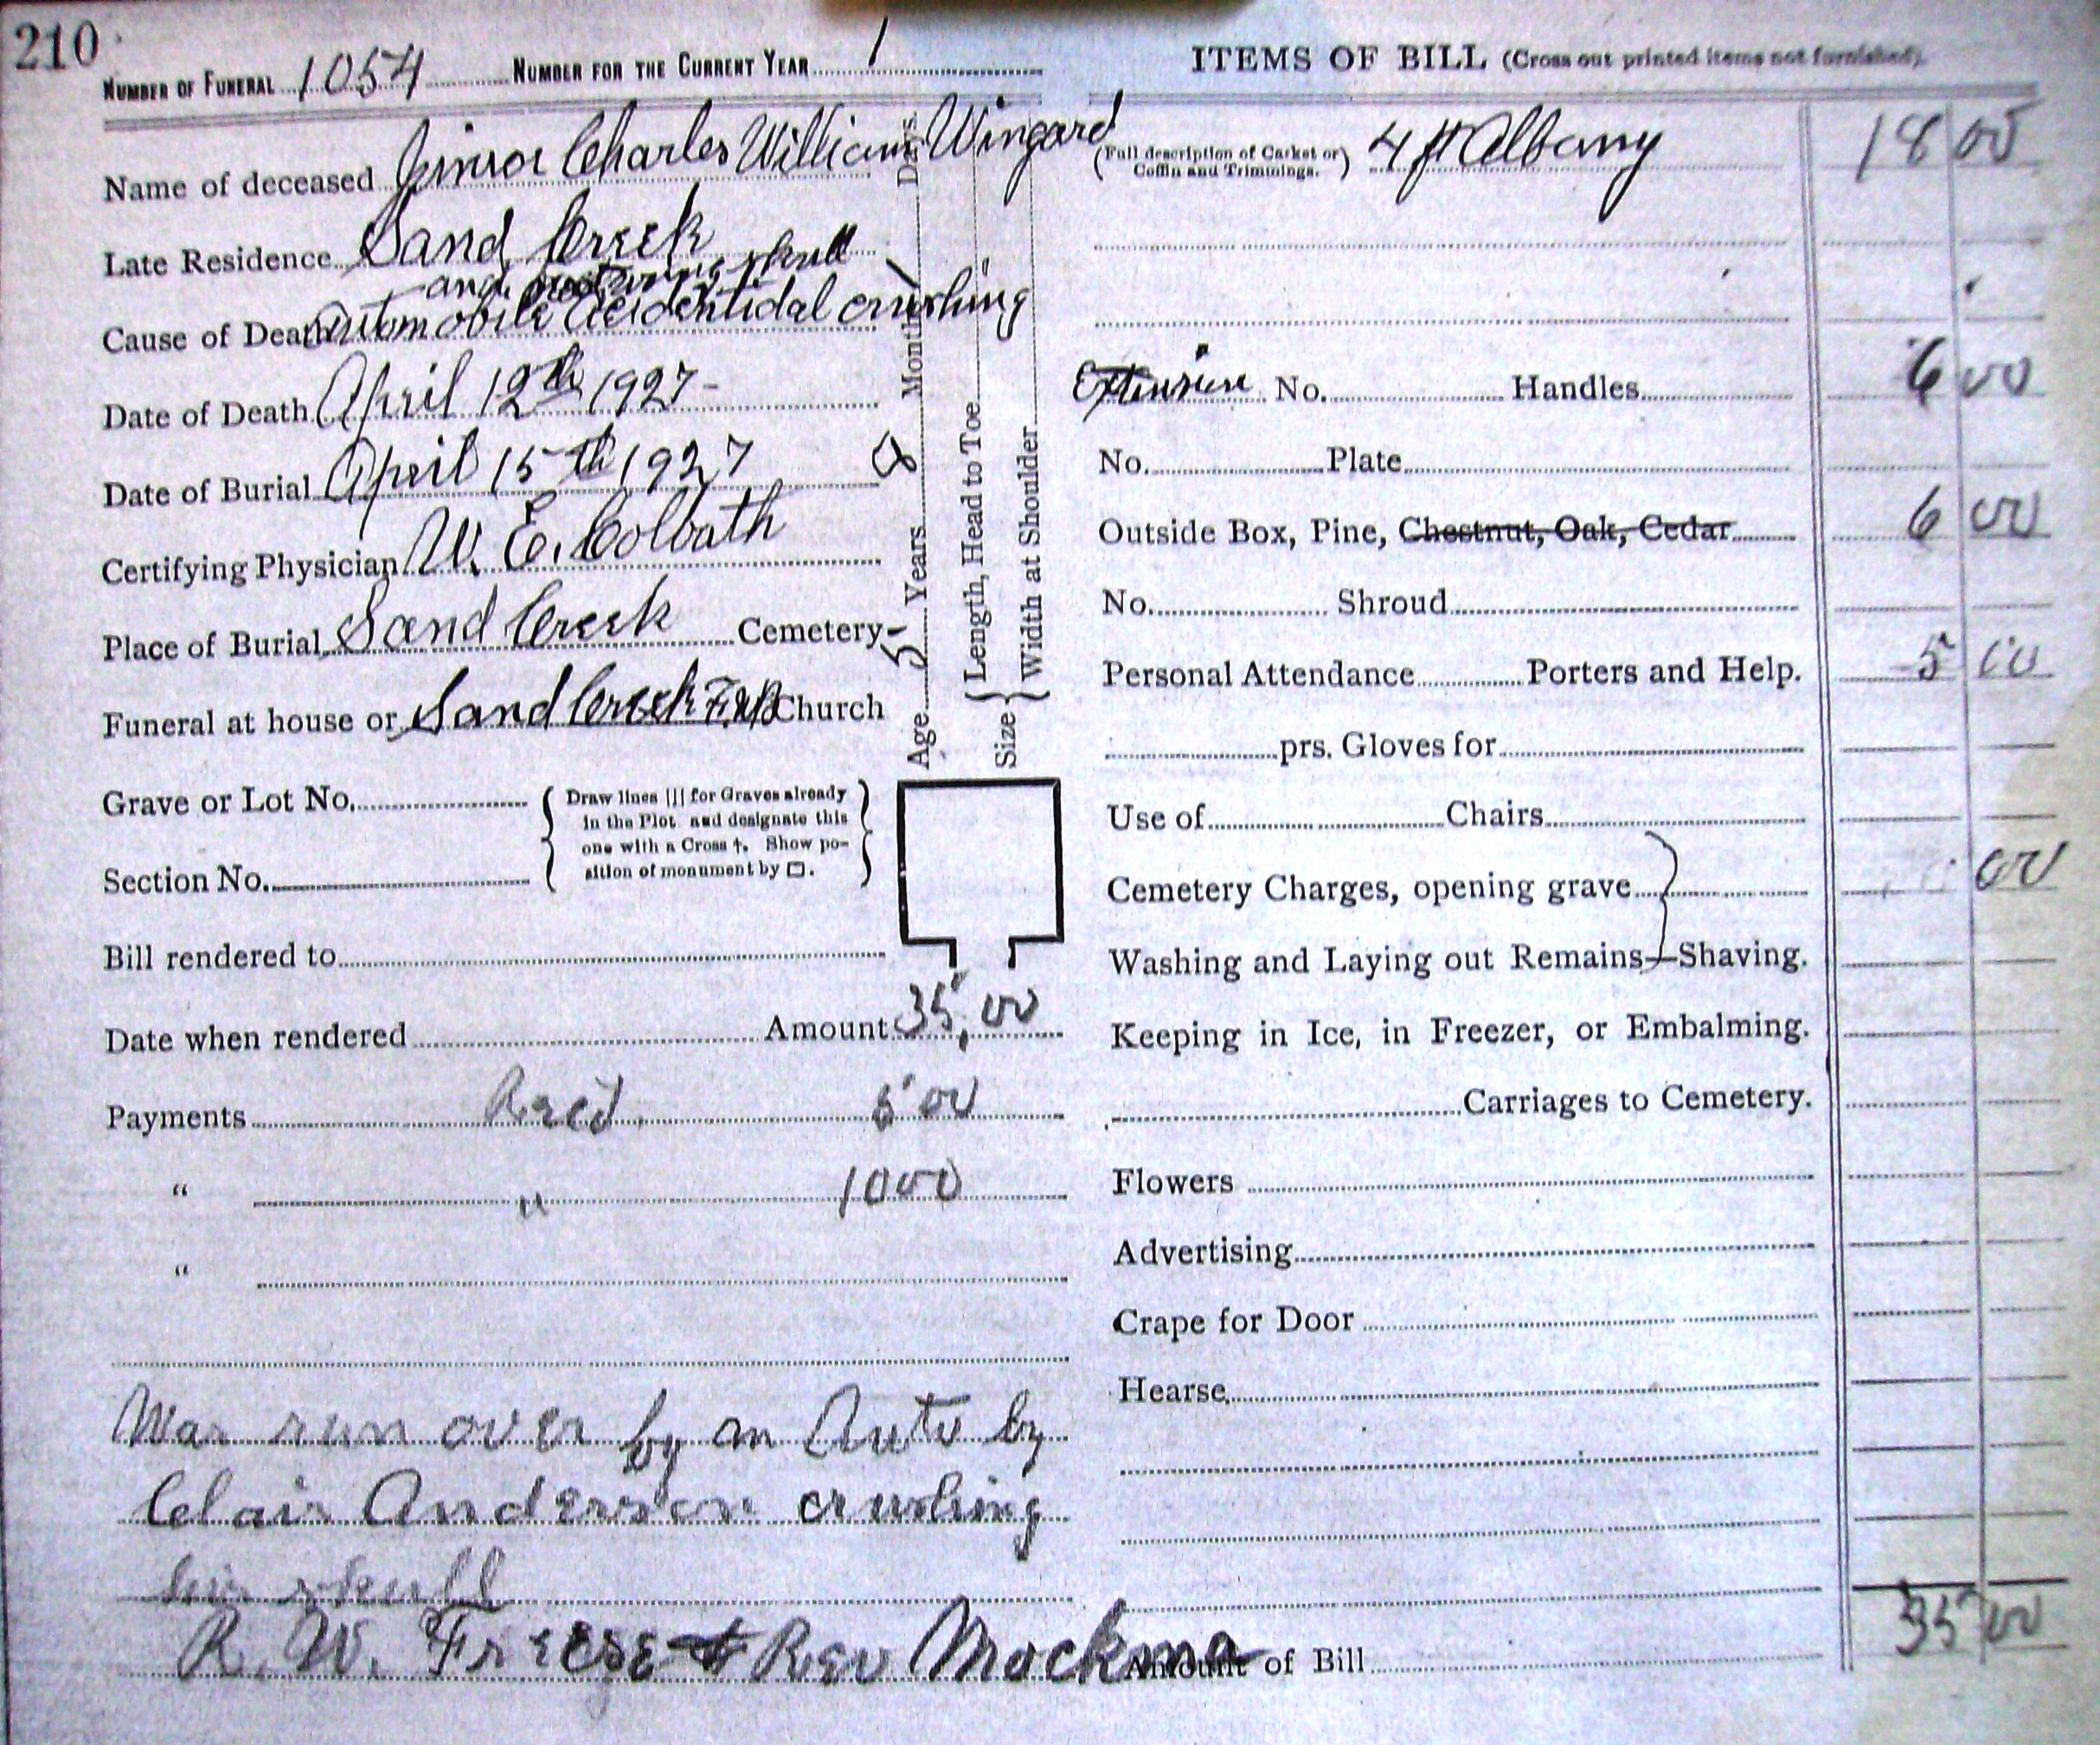 210
NUMBER OF FUNERAL 1054 NUMBER FOR THE CURRENT YEAR 1
Name of deceased Junior Charles William Wingard
Late Residence Sand Creek
and skull
Cause of Death Automobile Accidentidal crushing
Date of Death April 12th 1927-
Date of Burial April 15th 1927
Certifying Physician W. E. Colbath
Place of Burial Sand Creek Cemetery
Funeral at house or Sand Creek Church
Age 5 Years 8 Months 1 Days
Size { Length, Head to Toe
Width at Shoulder
Grave or Lot No.
Section No.
{ Draw lines ||| for Graves already
in the Plot and designate this
one with a Cross †. Show po-
sition of monument by □. }
Bill rendered to
Date when rendered Amount 35,00
Payments Recd. 5 00
" " 10 00
"
Was run over by an Auto by
Clair Anderson crushing
his skull
R. W. Friese & Rev Mockma
ITEMS OF BILL (Cross out printed items not furnished).
(Full description of Casket or
Coffin and Trimmings.) 4 ft Albany 18 00
Extension No. Handles 6 00
No. Plate
Outside Box, Pine, Chestnut, Oak, Cedar 6 00
No. Shroud
Personal Attendance Porters and Help. 5 00
prs. Gloves for
Use of Chairs
Cemetery Charges, opening grave 00
Washing and Laying out Remains—Shaving.
Keeping in Ice, in Freezer, or Embalming.
Carriages to Cemetery.
Flowers
Advertising
Crape for Door
Hearse
Amount of Bill 35 00